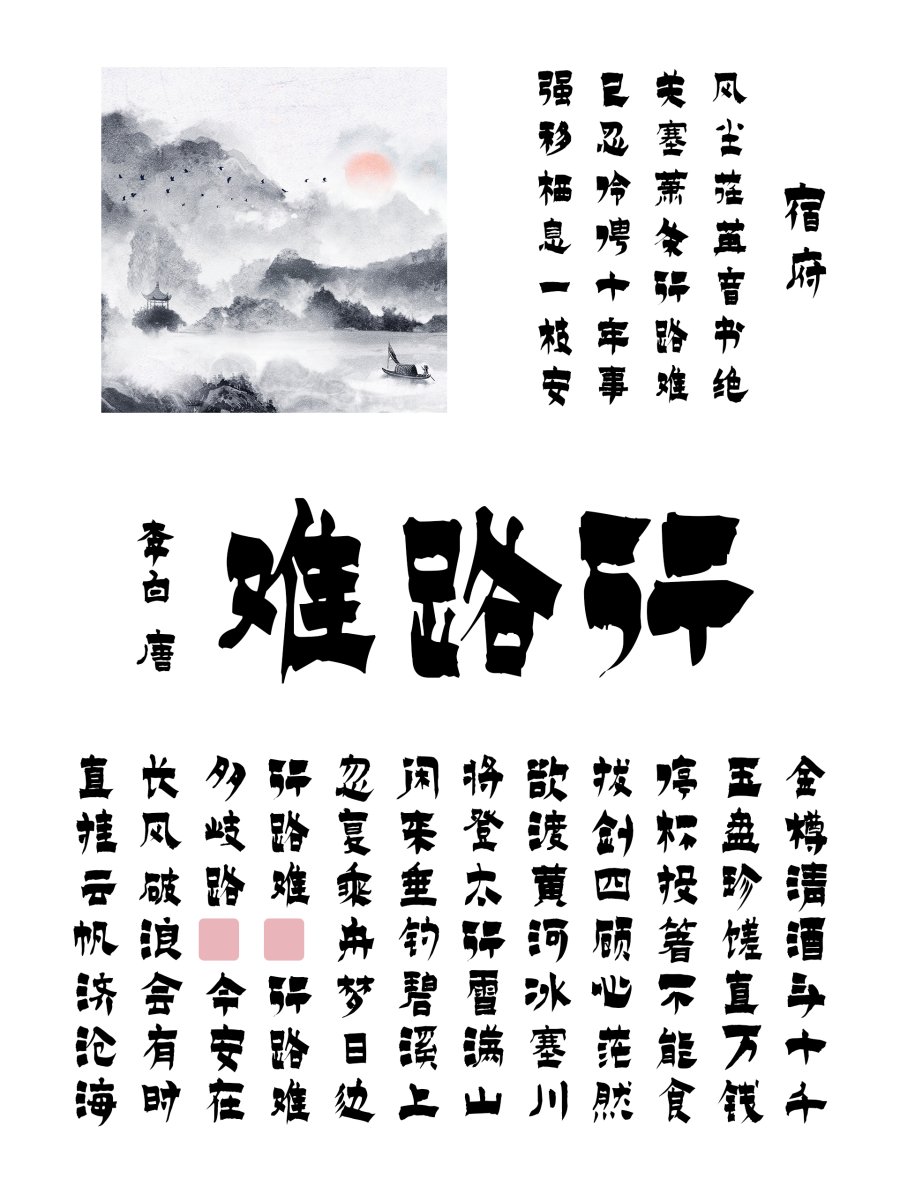 宿府
风尘荏苒音书绝
关塞萧条行路难
已忍伶俜十年事
强移栖息一枝安
行路难
李白 唐
金樽清酒斗十千
玉盘珍馐直万钱
停杯投箸不能食
拔剑四顾心茫然
欲渡黄河冰塞川
将登太行雪满山
闲来垂钓碧溪上
忽复乘舟梦日边
行路难 行路难
多歧路 今安在
长风破浪会有时
直挂云帆济沧海